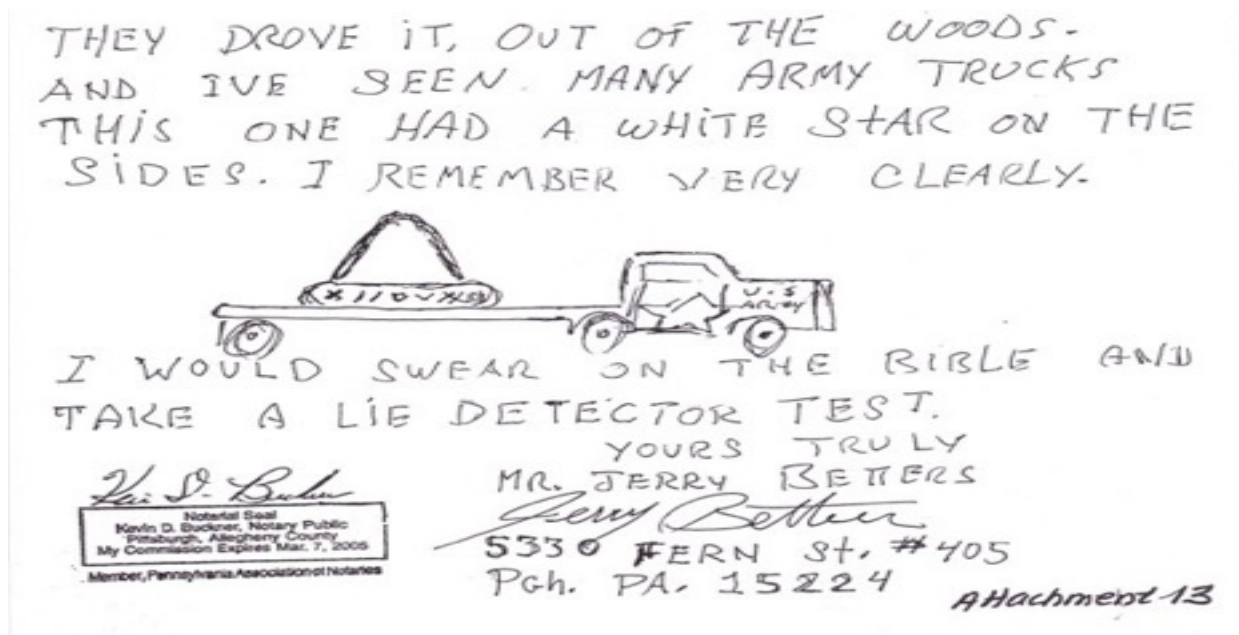 THEY DROVE iT, OUT OF THE WOODS.
AND IVE SEEN. MANY ARMY TRUCKS
THiS ONE HAD A WHiTE StAR ON THE
SiDES. I REMEMBER VERY CLEARLY.
U.S
ARMY
I WOULD SWEAR ON THE BIBLE AND
TAKE A LiE DETECTOR TEST.
YOURS TRULY
MR. JERRY BETTERS
Jerry Betters
5330 FERN St. #405
PGh. PA. 15224
Kevin D. Buckner
Notarial Seal
Kevin D. Buckner, Notary Public
Pittsburgh, Allegheny County
My Commission Expires Mar. 7, 2005
Member, Pennsylvania Association of Notaries
Attachment 13